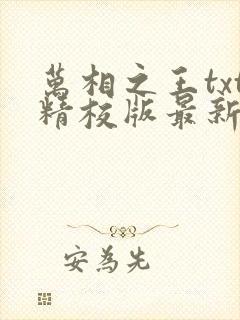 萬相之王txt
精校版最新
安為先